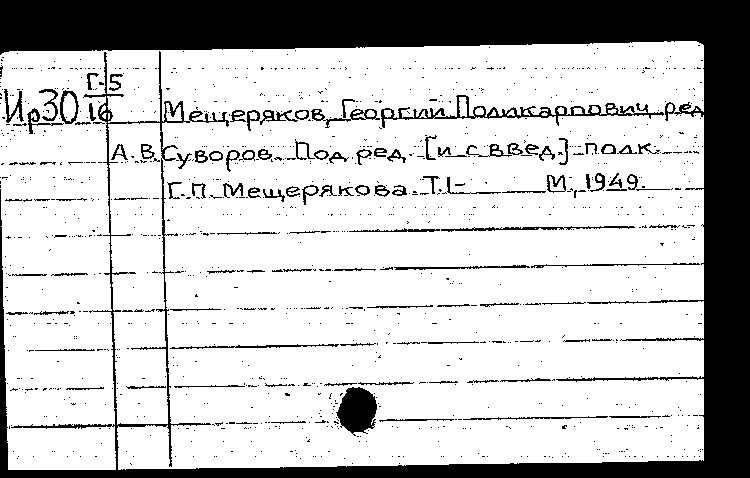 Ир30 Г-5/16
Мещеряков, Георгий Поликарпович ред
А. В. Суворов. Под ред. [и с введ.] полк.
Г. П. Мещерякова. Т. 1- М., 1949.